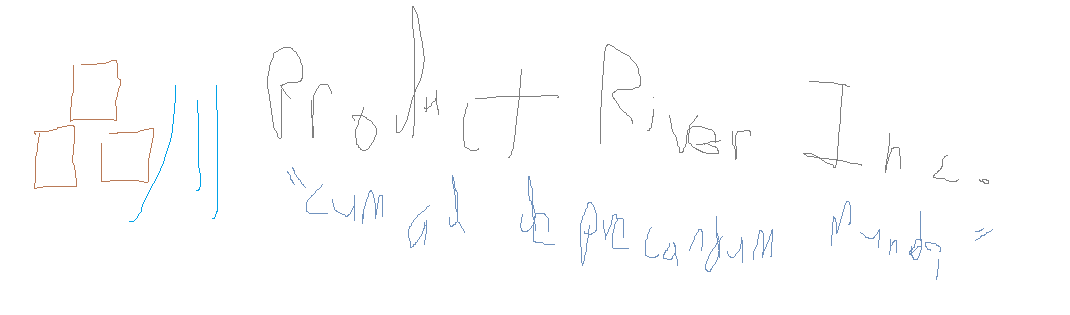 Product River Inc.
"cum ad deprecandum